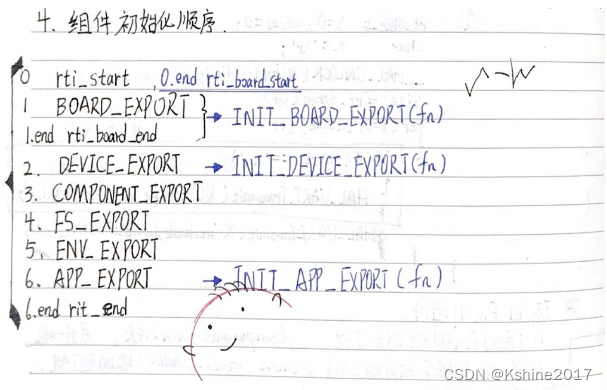 4. 组件初始化顺序.
0 rti_start 0.end rti_board_start
1 BOARD_EXPORT → INIT_BOARD_EXPORT(fn)
1.end rti_board_end
2. DEVICE_EXPORT → INIT_DEVICE_EXPORT(fn)
3. COMPONENT_EXPORT
4. FS_EXPORT
5. ENV_EXPORT
6. APP_EXPORT → INIT_APP_EXPORT (fn)
6.end rit_end
CSDN @Kshine2017